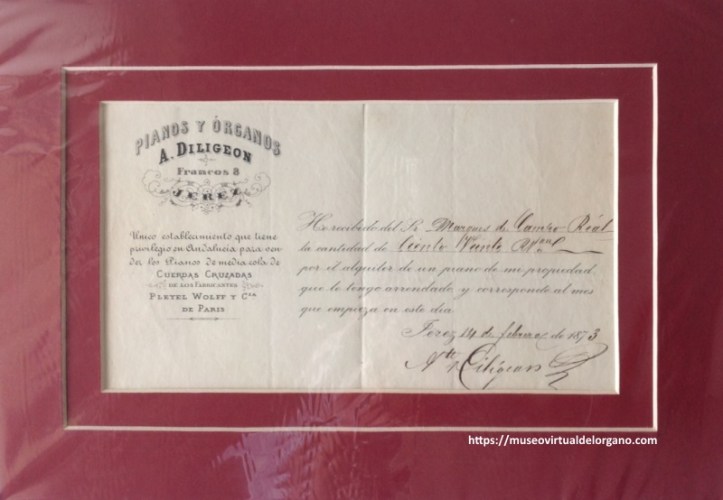 PIANOS Y ÓRGANOS
A. DILIGEON
Francos 8
JEREZ
Unico establecimiento que tiene
privilegio en Andalucia para ven
der los Pianos de media cola de
CUERDAS CRUZADAS
DE LOS FABRICANTES
PLEYEL WOLFF Y Cᴵᴬ
DE PARIS
He recibido del Sr Marques de Campo Réal
la cantidad de Ciento Veinte
por el alquiler de un piano de mi propiedad
que le tengo arrendado y corresponde al mes
que empieza en este dia
Jerez 14 de febrero de 1873
Diligeon
https://museovirtualdelorgano.com